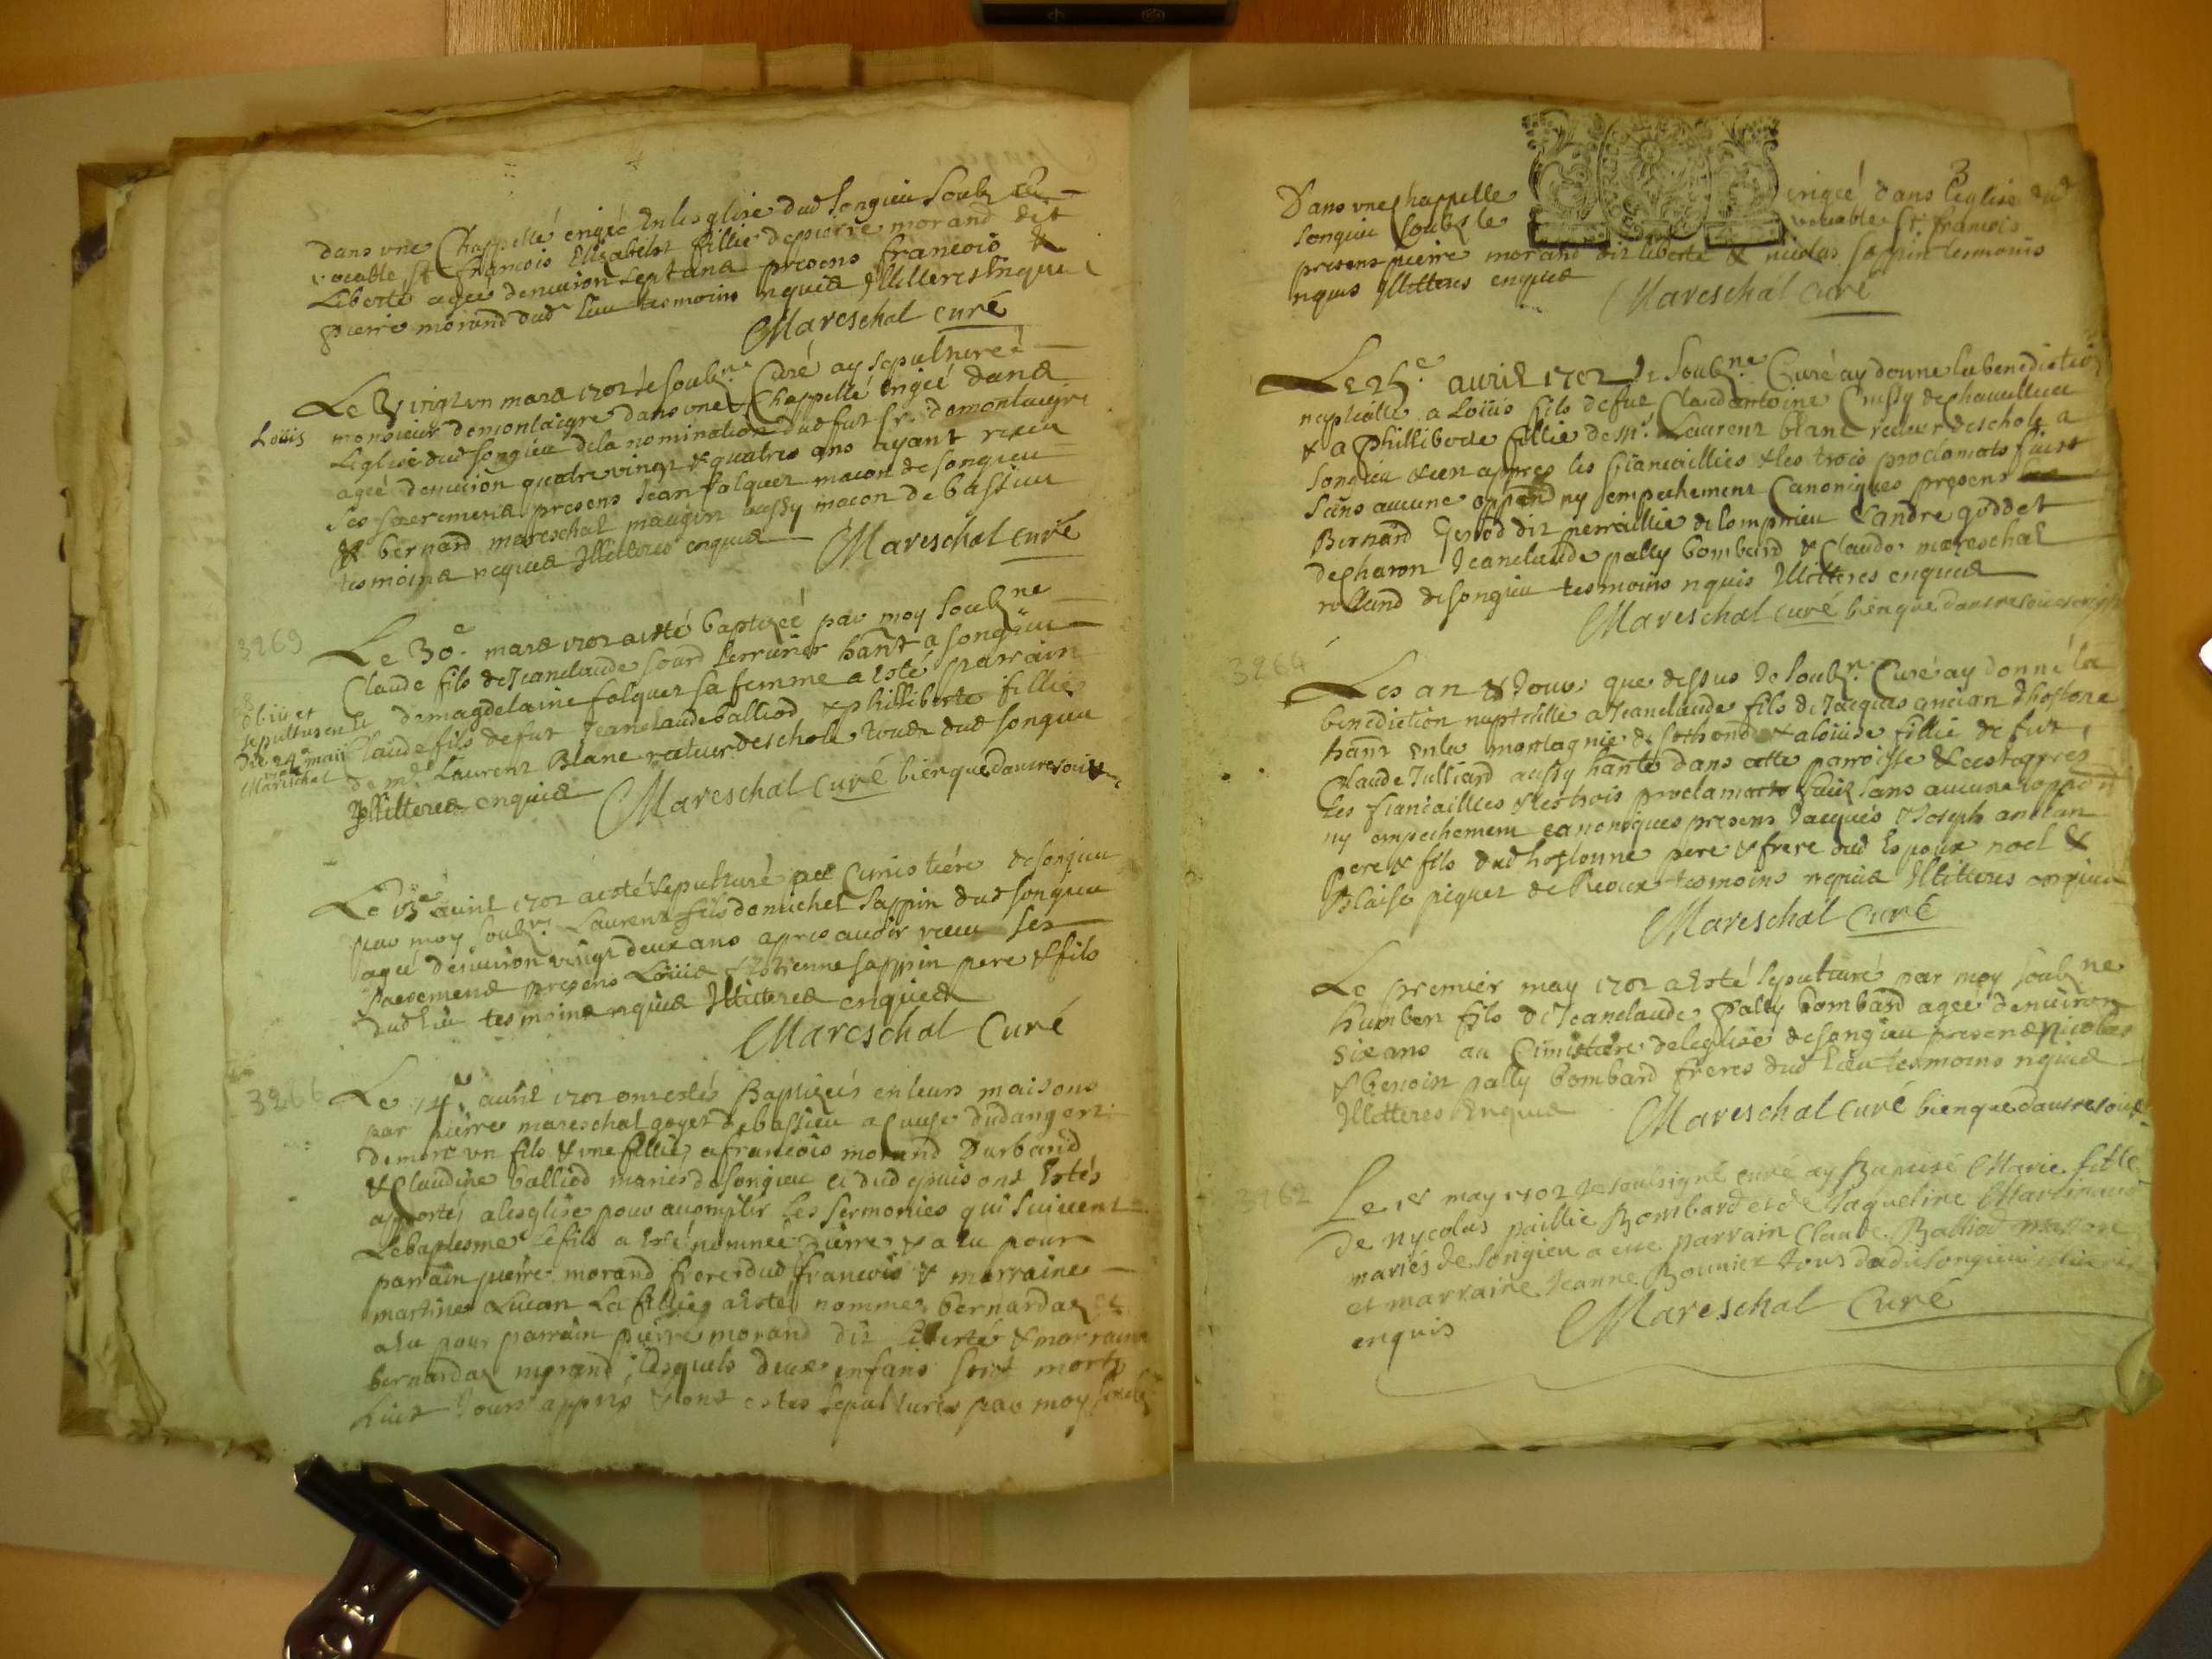 dans vne Chappelle erigée En leglise dud Songieu Soubz le
vocable St francois Elizabeth fillie de pierre morand dit
Liberté agée denuiron sept ans presens francois &
pierre morand dud lieu tesmoins requis Illitteres Enquis
Mareschal curé
Le vingt vn mars 1702 Je soubzne Curé ay sepulturé
Loüis
monsieur de montaigre dans vne Chappelle Erigée dans
Leglise dud Songieu de la nomination dud fut sr. de montaigre
agé denuiron quatre vingt & quatres ans ayant receu
Ses sacremens presens Jean falquet macon de songieu
& bernard mareschal maugin aussy macon de bassieu
tesmoins requis Illitteres enquis Mareschal curé
3269
Le 30e. mars 1702 a esté baptizé par moy soubzne
Claude fils de Jeanclaude sourd serrurier hant a songieu
& de magdelaine falquet sa femme a Esté parrain
Claude fils de fut Jeanclaude balliod & philliberte fillie
de mr. Laurent Blanc rateur deschole tous dud songieu
Illitteres enquis Mareschal curé bienquedautresoit
obiit et
sepultus est
die 24a maii
1702
Mareschal
Le 13e auril 1702 a esté sepulturé au Cimistiére de songieu
par moy soubzne. Laurent fils de michel sappin dud songieu
agé denuiron vingt deux ans apres auoir receu ses
sacremens presens Loüis & Estienne sappin pere & fils
dud lieu tesmoins requis Illitteres enquis
Mareschal Curé
3266
Le 14e auril 1702 ont estés Baptizés en leurs maisons
par pierre mareschal goyet de bassieu a cause du danger
de mort vn fils & vne fillie a francois morand Durband
& Claudine balliod mariés de songieu et du depuis ont Estés
apportés a lesglise pour acomplir les sermonies qui suiuent
Le baptesme le fils a esté nommé pierre & a eu pour
parrain pierre morand frere dud francois & marraine
martine Lucan La fillie a esté nommé bernarda
a eu pour parrain pierre morand dit liberté & marraine
bernarda morand, lesquels deux enfans sont morts
huit Jours appres & ont estés sepulturés par moy soubz
3
Dans vne Chappelle erigeé dans leglise dud
Songieu soubz le vocable St francois
presens pierre morand dit liberté & nicolas sappin tesmoins
requis Illitteres enquis Mareschal curé
Le 25e. auril 1702 Je Soubzne. Curé ay donne la benediction
nuptialle a Loüis fils de fut Claudantoine Crussy de Chauillieu
& a Philliberte fillie de mr. Laurent blanc recteur deschole a
Songieu & ce appres les fiancaillies & les trois proclamats faits
Sans aucune oppoön ny empechement Canoniques presens
Bernard Genod dit perraillie de lompnieu & andre goddet
de Charon Jeanclaude pally bombard & Claude mareschal
rolland de songieu tesmoins requis Illitteres enquis
Mareschal curé bienquedautresoit
3264
Les an & Jour que dessus Je soubzne. Curé ay donné la
benediction nuptialle a Jeanclaude fils de Jacques ancian dhostone
hant En la montagnie de sothonod & a loüise fillie de fut
Claude Julliard aussy hante dans cette parroisse & ce apres
les fiancaillies & les trois proclamats faits sans aucune oppoön
ny empechement canoniques presens Jacques & Joseph ancian
pere & fils dud hostonne pere & frere dud Espoux noel &
Blaise piquet de Reoux tesmoins requis Illitteres enquis
Mareschal curé
Le premier may 1702 a Esté sepulturé par moy soubzne
humbert fils de Jeanclaude Pally bombard agé denuiron
six ans au Cimistiere deleglise de songieu presens nicolas
& benoit pally bombard freres dud lieu tesmoins requis
Illitteres Enquis Mareschal curé bienquedautresoit
3262
Le 1er may 1702 Je soulsigné curé ay Baptisé Marie fille
de nycolas paillie Bombard et de Jaqueline Martinaud
mariés de songieu a eté parrain Claude Balliod
et marraine Jeanne Bonnier tous dudit songieu
enquis Mareschal Curé